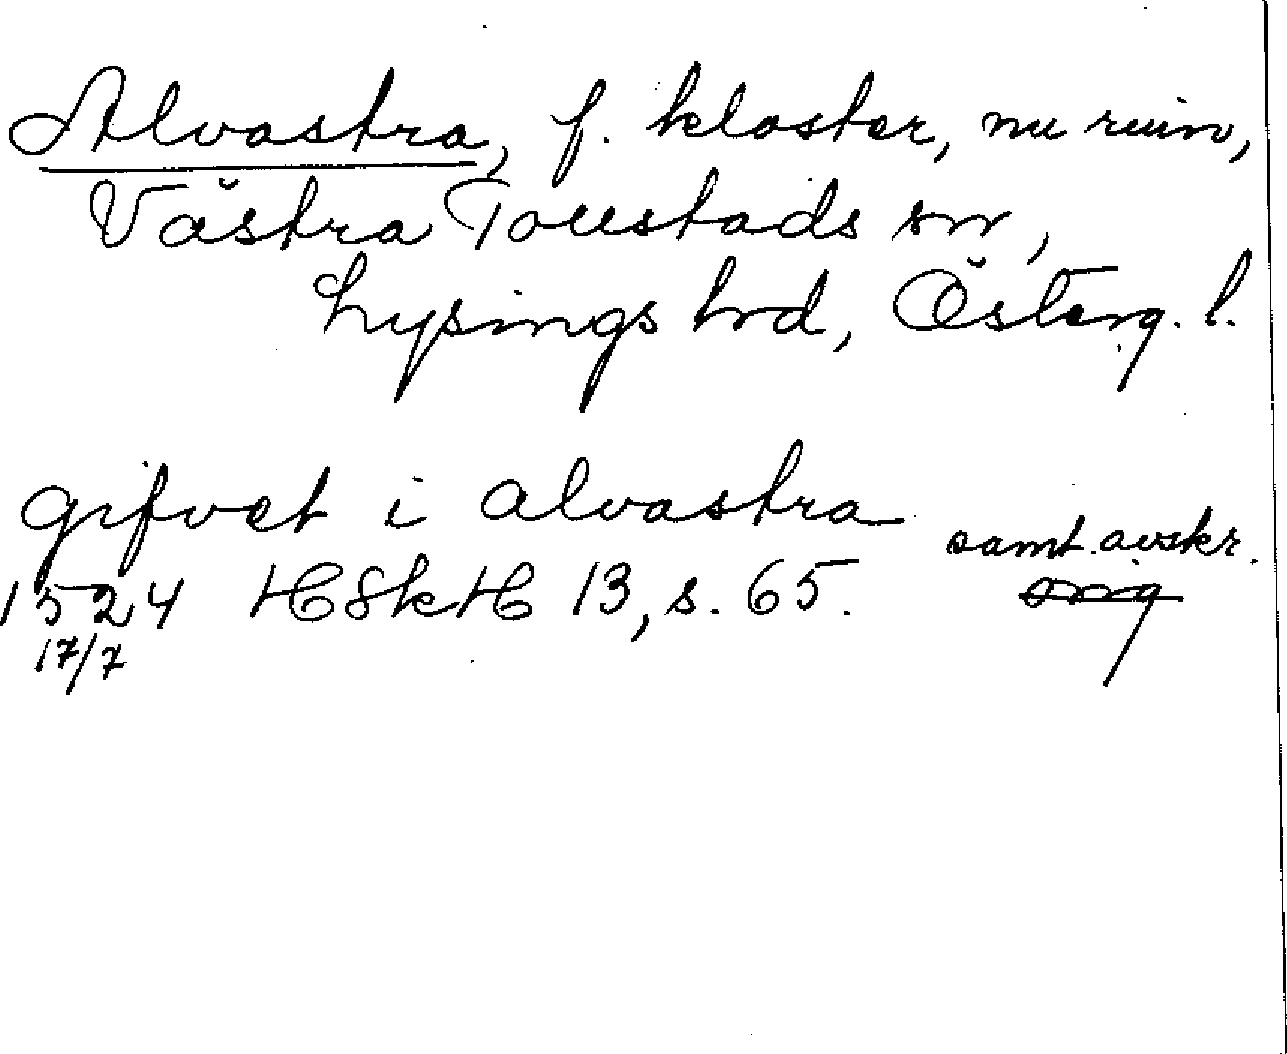 Alvastra, f. kloster, nu ruin,
Västra Tollstads sn,
Lysings hd, Österg. l.
gifvet i alvastra
samt. avskr.
1524 HSkH 13, s. 65. orig
17/7